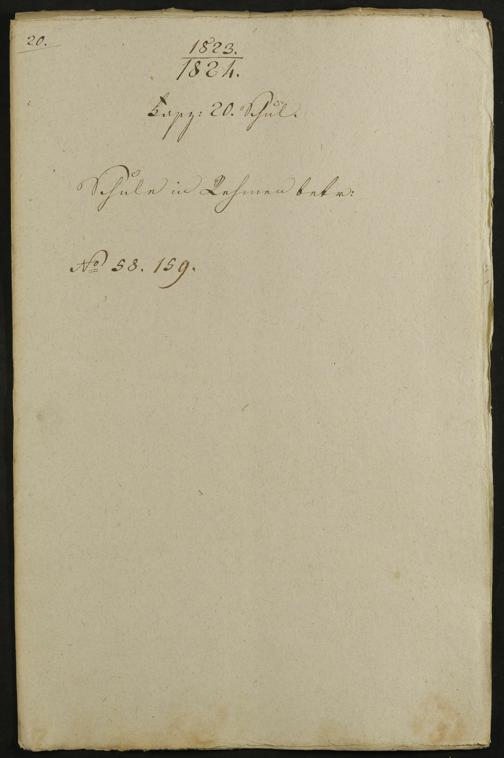 20.
1823.
1824.
Kapp: 20. Schul.
Schule in Lehmen betr:
No 58. 159.